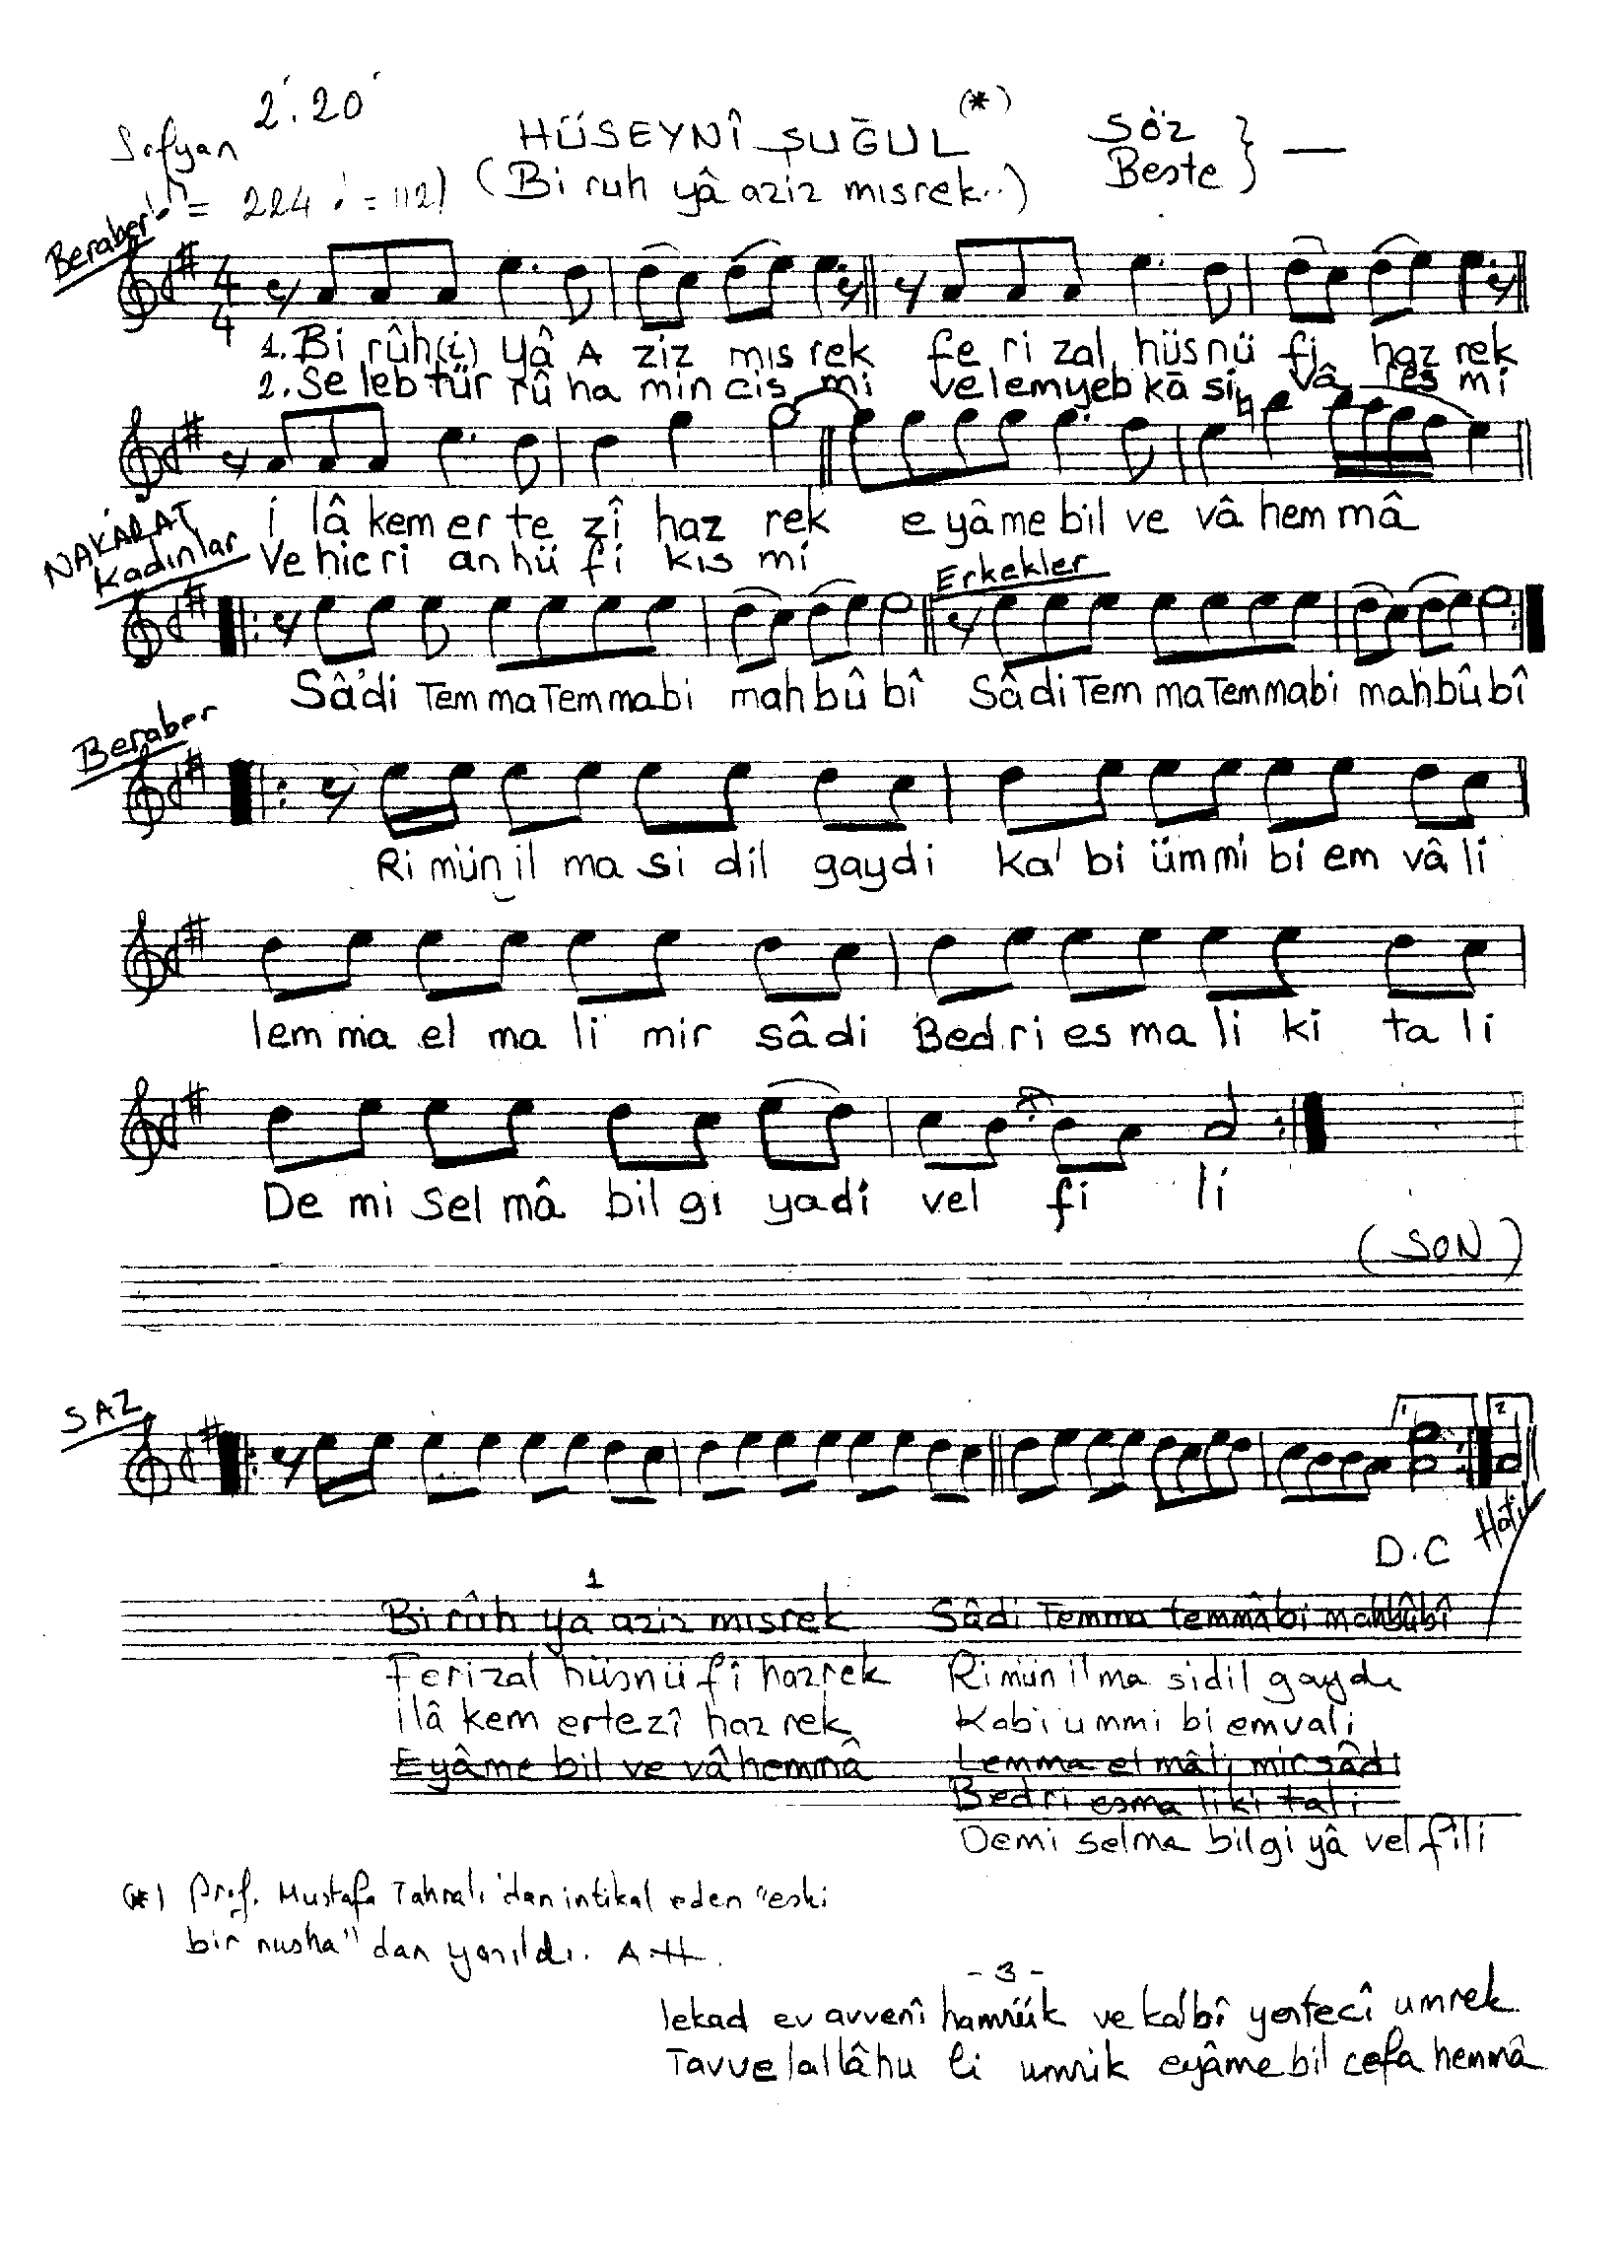 Sofyan 2'.20'
HÜSEYNÎ ŞUĞUL (*)
Söz
Beste } —
♪ = 224 ♩ = 112)
(Bi ruh yâ aziz mısrek..)
Beraber
4/4
1. Bi rûh(i) yâ A ziz mıs rek fe ri zal hüsnü fi haz rek
2. Se leb tür rû ha min cis mi ve lemyeb kā si vâ res mi
i lâ kem er te zî haz rek e yâ me bil ve vâ hem mâ
Ve hic ri an hü fi kıs mi
NAKARAT
Kadınlar
Erkekler
Sâ'di Tem ma Tem ma bi mah bû bî Sâ di Tem ma Tem ma bi mah bû bî
Beraber
Ri mün il ma si dil gaydi ka' bi üm mi bi em vâ li
lem ma el ma li mir sâ di Bed ri es ma li ki ta li
De mi sel mâ bil gi yadi vel fi li
(SON)
SAZ
1 2
D.C
1
Bi rûh ya aziz mısrek Sâdi Temma temmâbi mahbûbî
Ferizal hüsnü fî hazrek Rimün il ma sidil gayde
ilâ kem ertezî haz rek Kabi ummi bi emvali
Eyâme bil ve vâ hemmâ Lemma el mâli mirsâdi
Bedri esma liki tali
Demi selma bilgi yâ vel fili
(*) Prof. Mustafa Tahralı'dan intikal eden "eski
bir nusha" dan yazıldı. A.H.
- 3 -
lekad ev avvenî hamrük ve ka'bî yertecî umrek
Tavvelallâhu li umrik eyâme bil cefa hemmâ